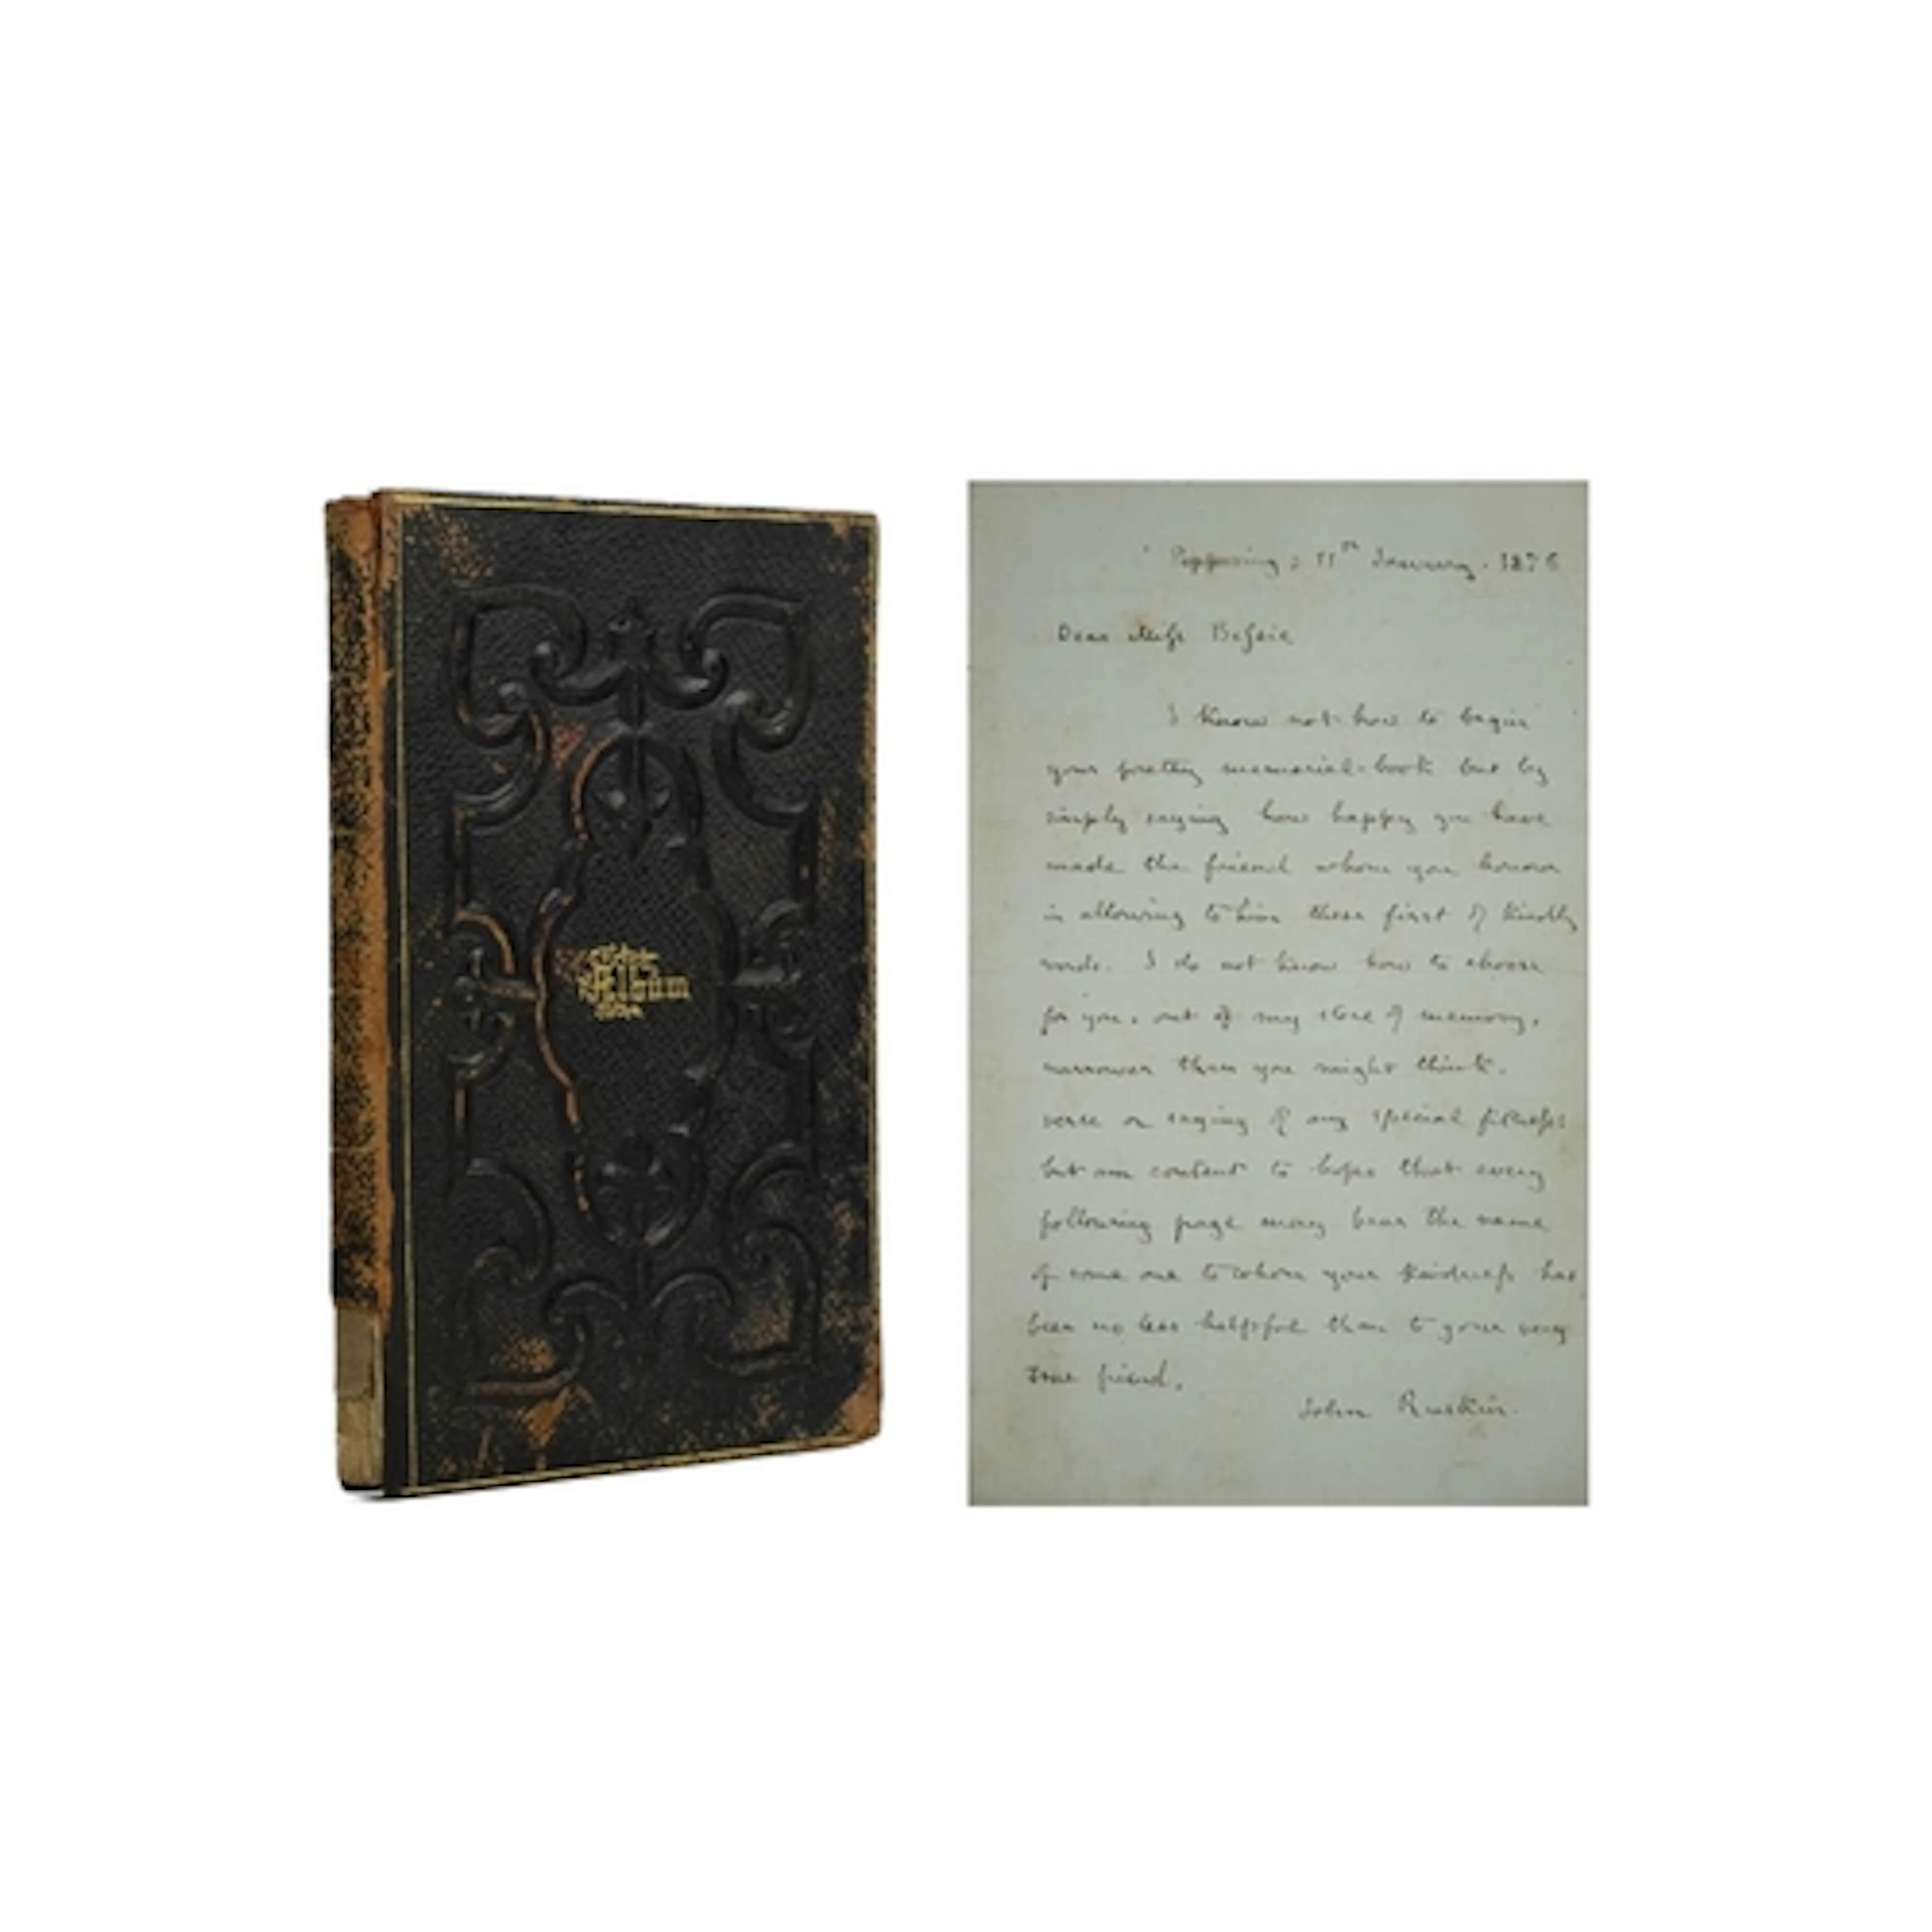 Album
11th January. 1876
Dear Miss Bessie
I know not how to begin
your pretty memorial-book but by
simply saying how happy you have
made the friend whom you honour
in allowing to him these first of kindly
words. I do not know how to choose
for you, out of my store of memory,
narrower than you might think,
verse or saying of any special fitness
but am content to hope that every
following page may bear the name
of some one to whom your kindness has
been no less helpful than to your very
true friend,
John Ruskin.